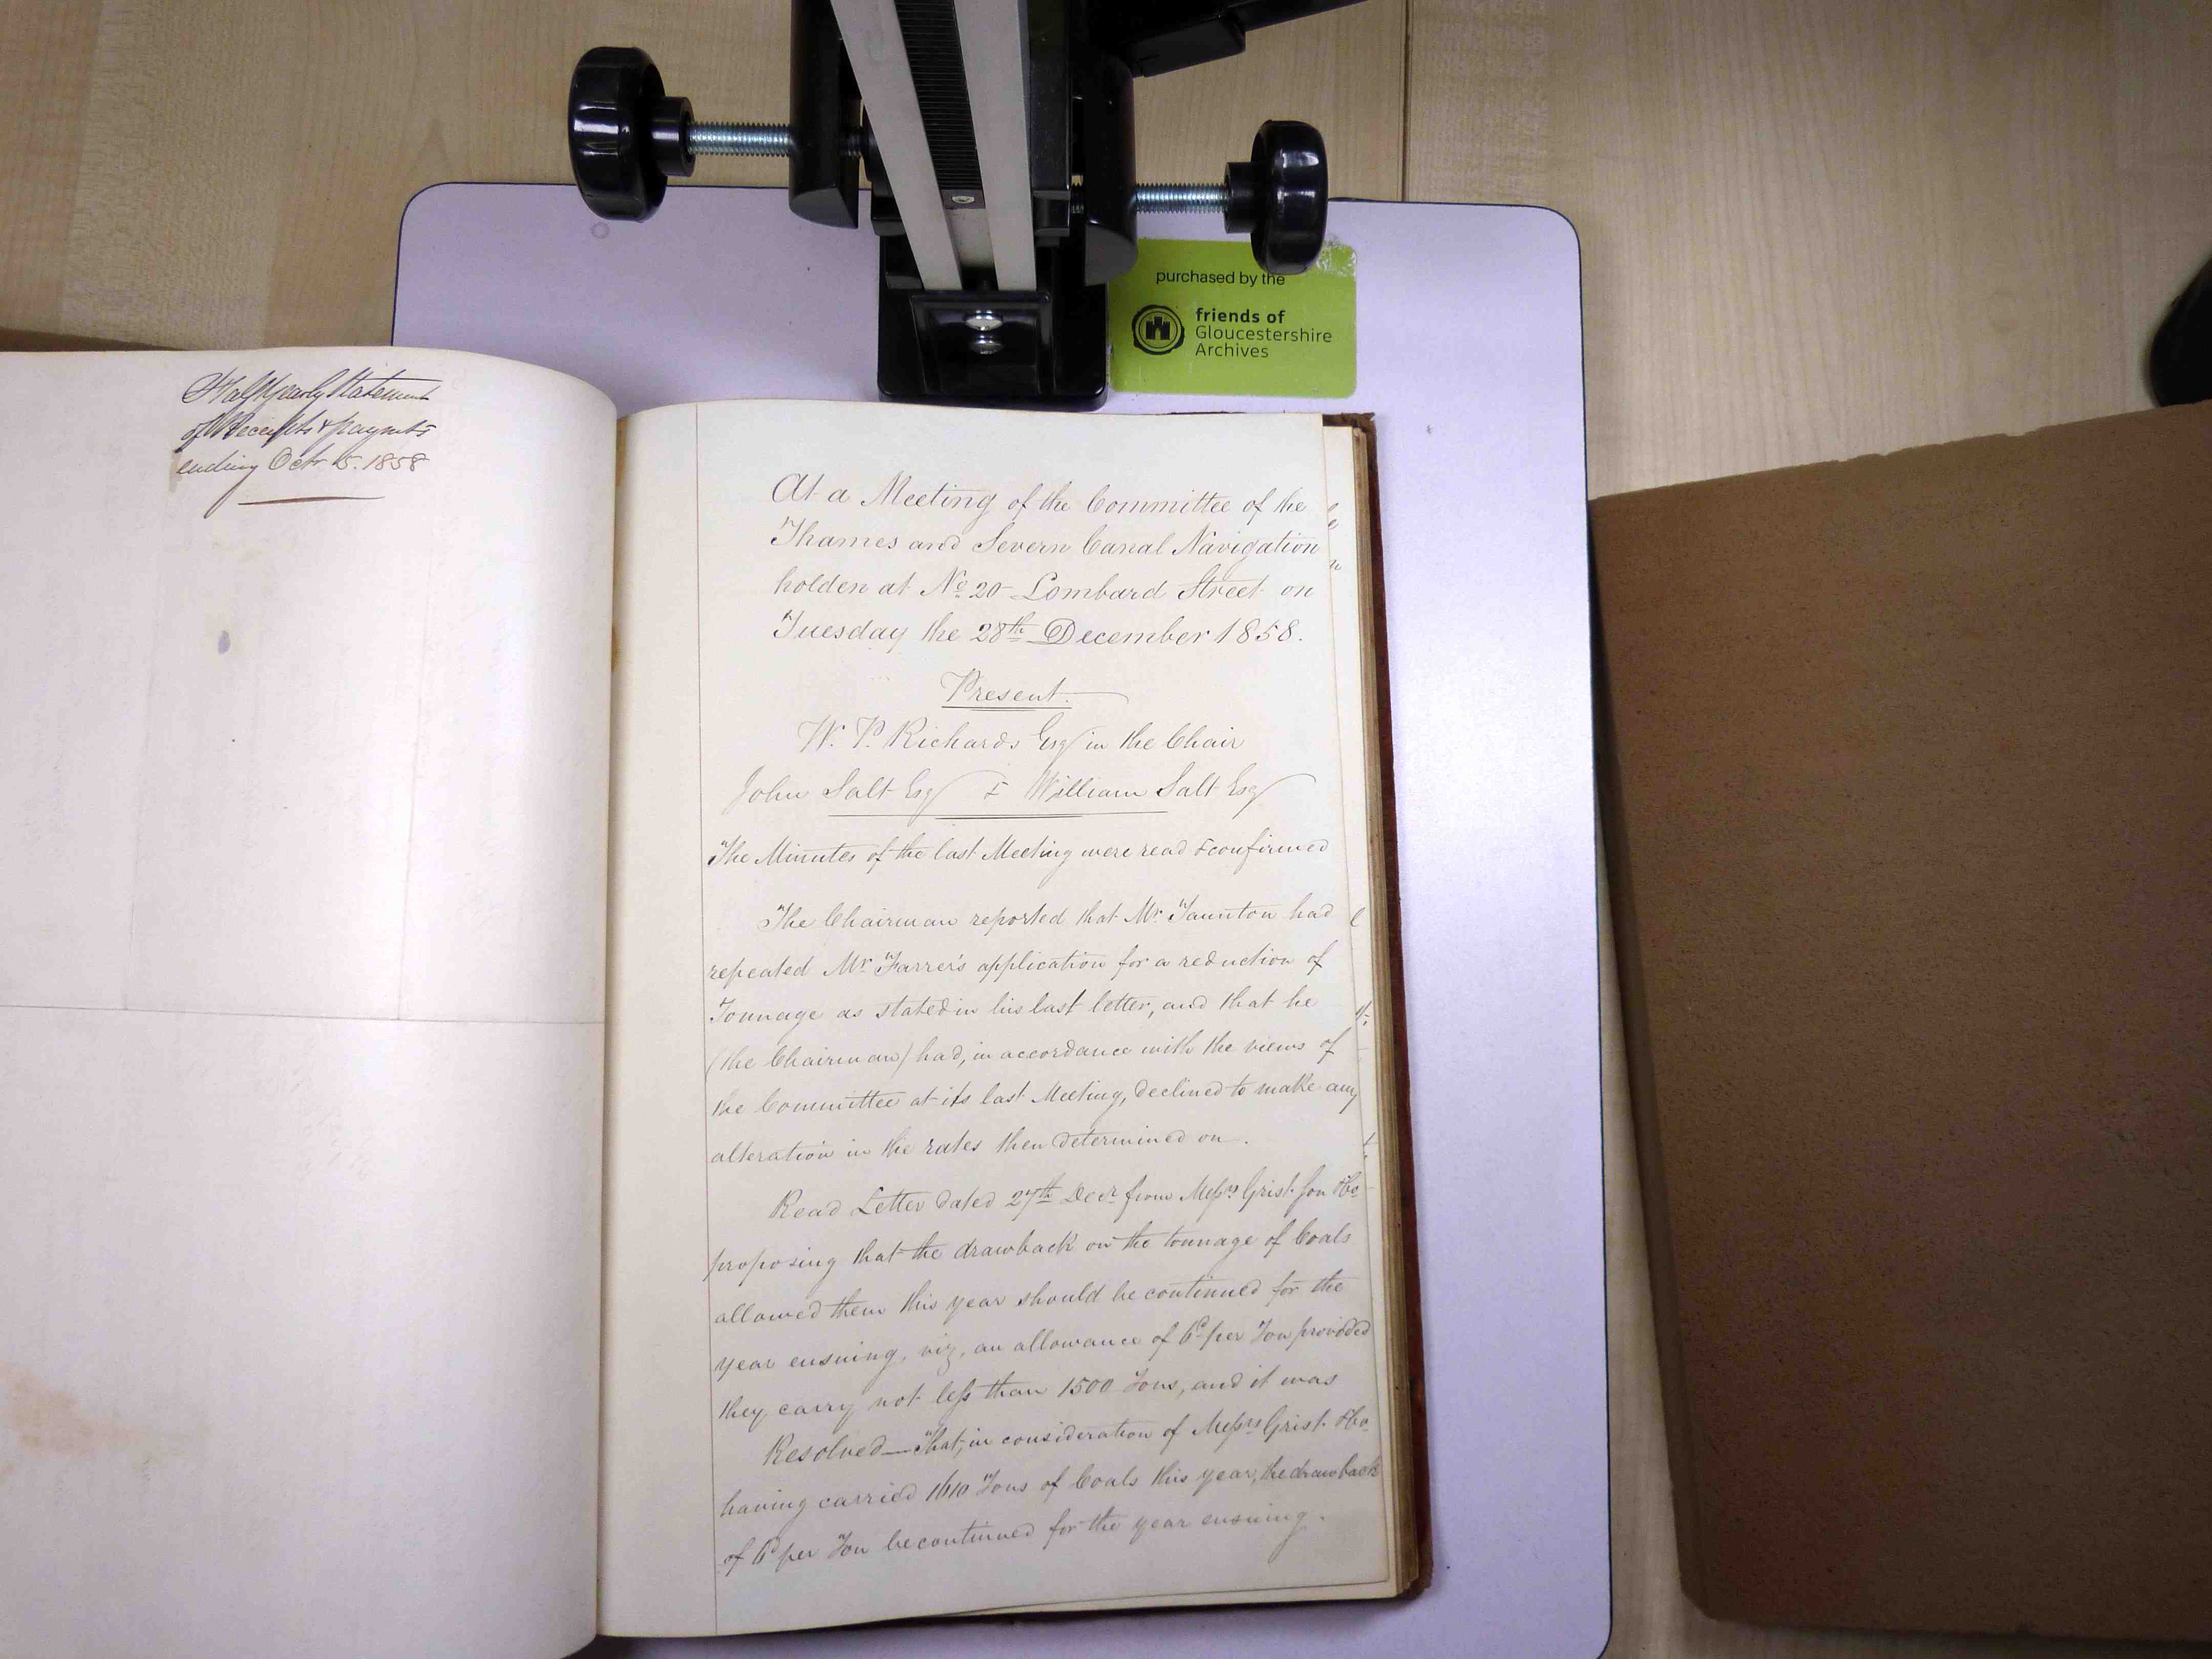 purchased by the
friends of
Gloucestershire
Archives
Half Yearly Statement
of Receipts & paymts
ending Octr 5. 1858
At a Meeting of the Committee of the
Thames and Severn Canal Navigation
holden at No. 20 Lombard Street on
Tuesday the 28th December 1858.
Present.
W. P. Richards Esq in the Chair
John Salt Esq & William Salt Esq
The Minutes of the last Meeting were read & confirmed
The Chairman reported that Mr. Taunton had
repeated Mr. Farrer's application for a reduction of
Tonnage as stated in his last letter, and that he
(the Chairman) had, in accordance with the views of
the Committee at its last Meeting, declined to make any
alteration in the rates then determined on.
Read Letter dated 27th Decr. from Messrs Grist Son & Co
proposing that the drawback on the tonnage of Coals
allowed them this year should be continued for the
year ensuing, viz, an allowance of 6d per Ton provided
they carry not less than 1500 Tons, and it was
Resolved — That, in consideration of Messrs Grist & Co
having carried 1610 Tons of Coals this year, the drawback
of 6d per Ton be continued for the year ensuing.